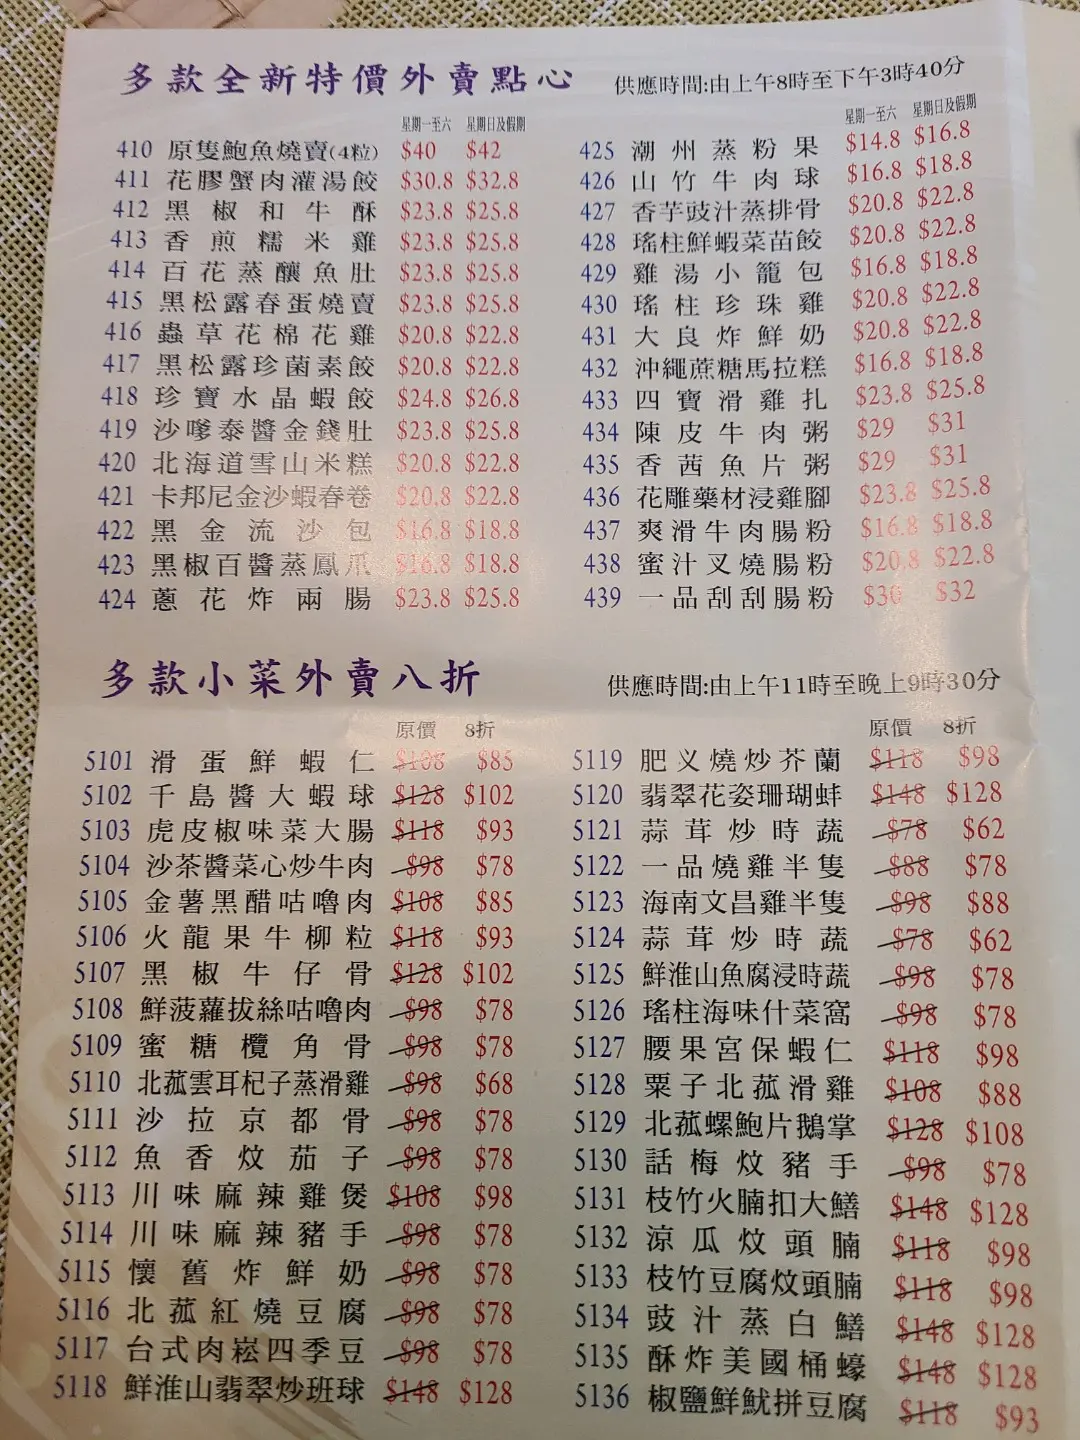 多款全新特價外賣點心 供應時間:由上午8時至下午3時40分
星期一至六 星期日及假期
410 原隻鮑魚燒賣(4粒) $40 $42
411 花膠蟹肉灌湯餃 $30.8 $32.8
412 黑椒和牛酥 $23.8 $25.8
413 香煎糯米雞 $23.8 $25.8
414 百花蒸釀魚肚 $23.8 $25.8
415 黑松露春蛋燒賣 $23.8 $25.8
416 蟲草花棉花雞 $20.8 $22.8
417 黑松露珍菌素餃 $20.8 $22.8
418 珍寶水晶蝦餃 $24.8 $26.8
419 沙嗲泰醬金錢肚 $23.8 $25.8
420 北海道雪山米糕 $20.8 $22.8
421 卡邦尼金沙蝦春卷 $20.8 $22.8
422 黑金流沙包 $16.8 $18.8
423 黑椒百醬蒸鳳爪 $16.8 $18.8
424 蔥花炸兩腸 $23.8 $25.8
星期一至六 星期日及假期
425 潮州蒸粉果 $14.8 $16.8
426 山竹牛肉球 $16.8 $18.8
427 香芋豉汁蒸排骨 $20.8 $22.8
428 瑤柱鮮蝦菜苗餃 $20.8 $22.8
429 雞湯小籠包 $16.8 $18.8
430 瑤柱珍珠雞 $20.8 $22.8
431 大良炸鮮奶 $20.8 $22.8
432 沖繩蔗糖馬拉糕 $16.8 $18.8
433 四寶滑雞扎 $23.8 $25.8
434 陳皮牛肉粥 $29 $31
435 香茜魚片粥 $29 $31
436 花雕藥材浸雞腳 $23.8 $25.8
437 爽滑牛肉腸粉 $16.8 $18.8
438 蜜汁叉燒腸粉 $20.8 $22.8
439 一品刮刮腸粉 $30 $32
多款小菜外賣八折 供應時間:由上午11時至晚上9時30分
原價 8折
5101 滑蛋鮮蝦仁 $108 $85
5102 千島醬大蝦球 $128 $102
5103 虎皮椒味菜大腸 $118 $93
5104 沙茶醬菜心炒牛肉 $98 $78
5105 金薯黑醋咕嚕肉 $108 $85
5106 火龍果牛柳粒 $118 $93
5107 黑椒牛仔骨 $128 $102
5108 鮮菠蘿拔絲咕嚕肉 $98 $78
5109 蜜糖欖角骨 $98 $78
5110 北菰雲耳杞子蒸滑雞 $98 $68
5111 沙拉京都骨 $98 $78
5112 魚香炆茄子 $98 $78
5113 川味麻辣雞煲 $108 $98
5114 川味麻辣豬手 $98 $78
5115 懷舊炸鮮奶 $98 $78
5116 北菰紅燒豆腐 $98 $78
5117 台式肉崧四季豆 $98 $78
5118 鮮淮山翡翠炒班球 $148 $128
原價 8折
5119 肥义燒炒芥蘭 $118 $98
5120 翡翠花姿珊瑚蚌 $148 $128
5121 蒜茸炒時蔬 $78 $62
5122 一品燒雞半隻 $88 $78
5123 海南文昌雞半隻 $98 $88
5124 蒜茸炒時蔬 $78 $62
5125 鮮淮山魚腐浸時蔬 $98 $78
5126 瑤柱海味什菜窩 $98 $78
5127 腰果宮保蝦仁 $118 $98
5128 栗子北菰滑雞 $108 $88
5129 北菰螺鮑片鵝掌 $128 $108
5130 話梅炆豬手 $98 $78
5131 枝竹火腩扣大鱔 $148 $128
5132 涼瓜炆頭腩 $118 $98
5133 枝竹豆腐炆頭腩 $118 $98
5134 豉汁蒸白鱔 $148 $128
5135 酥炸美國桶蠔 $148 $128
5136 椒鹽鮮魷拼豆腐 $118 $93